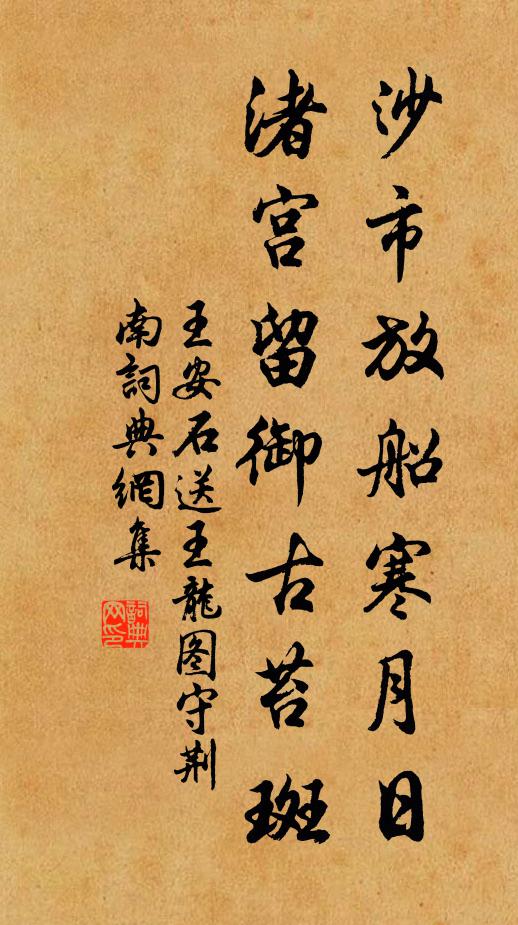 沙市放船寒月日
渚宫留御古苔斑
王安石送王龍图守荆
南詞典網集
詞典
网印